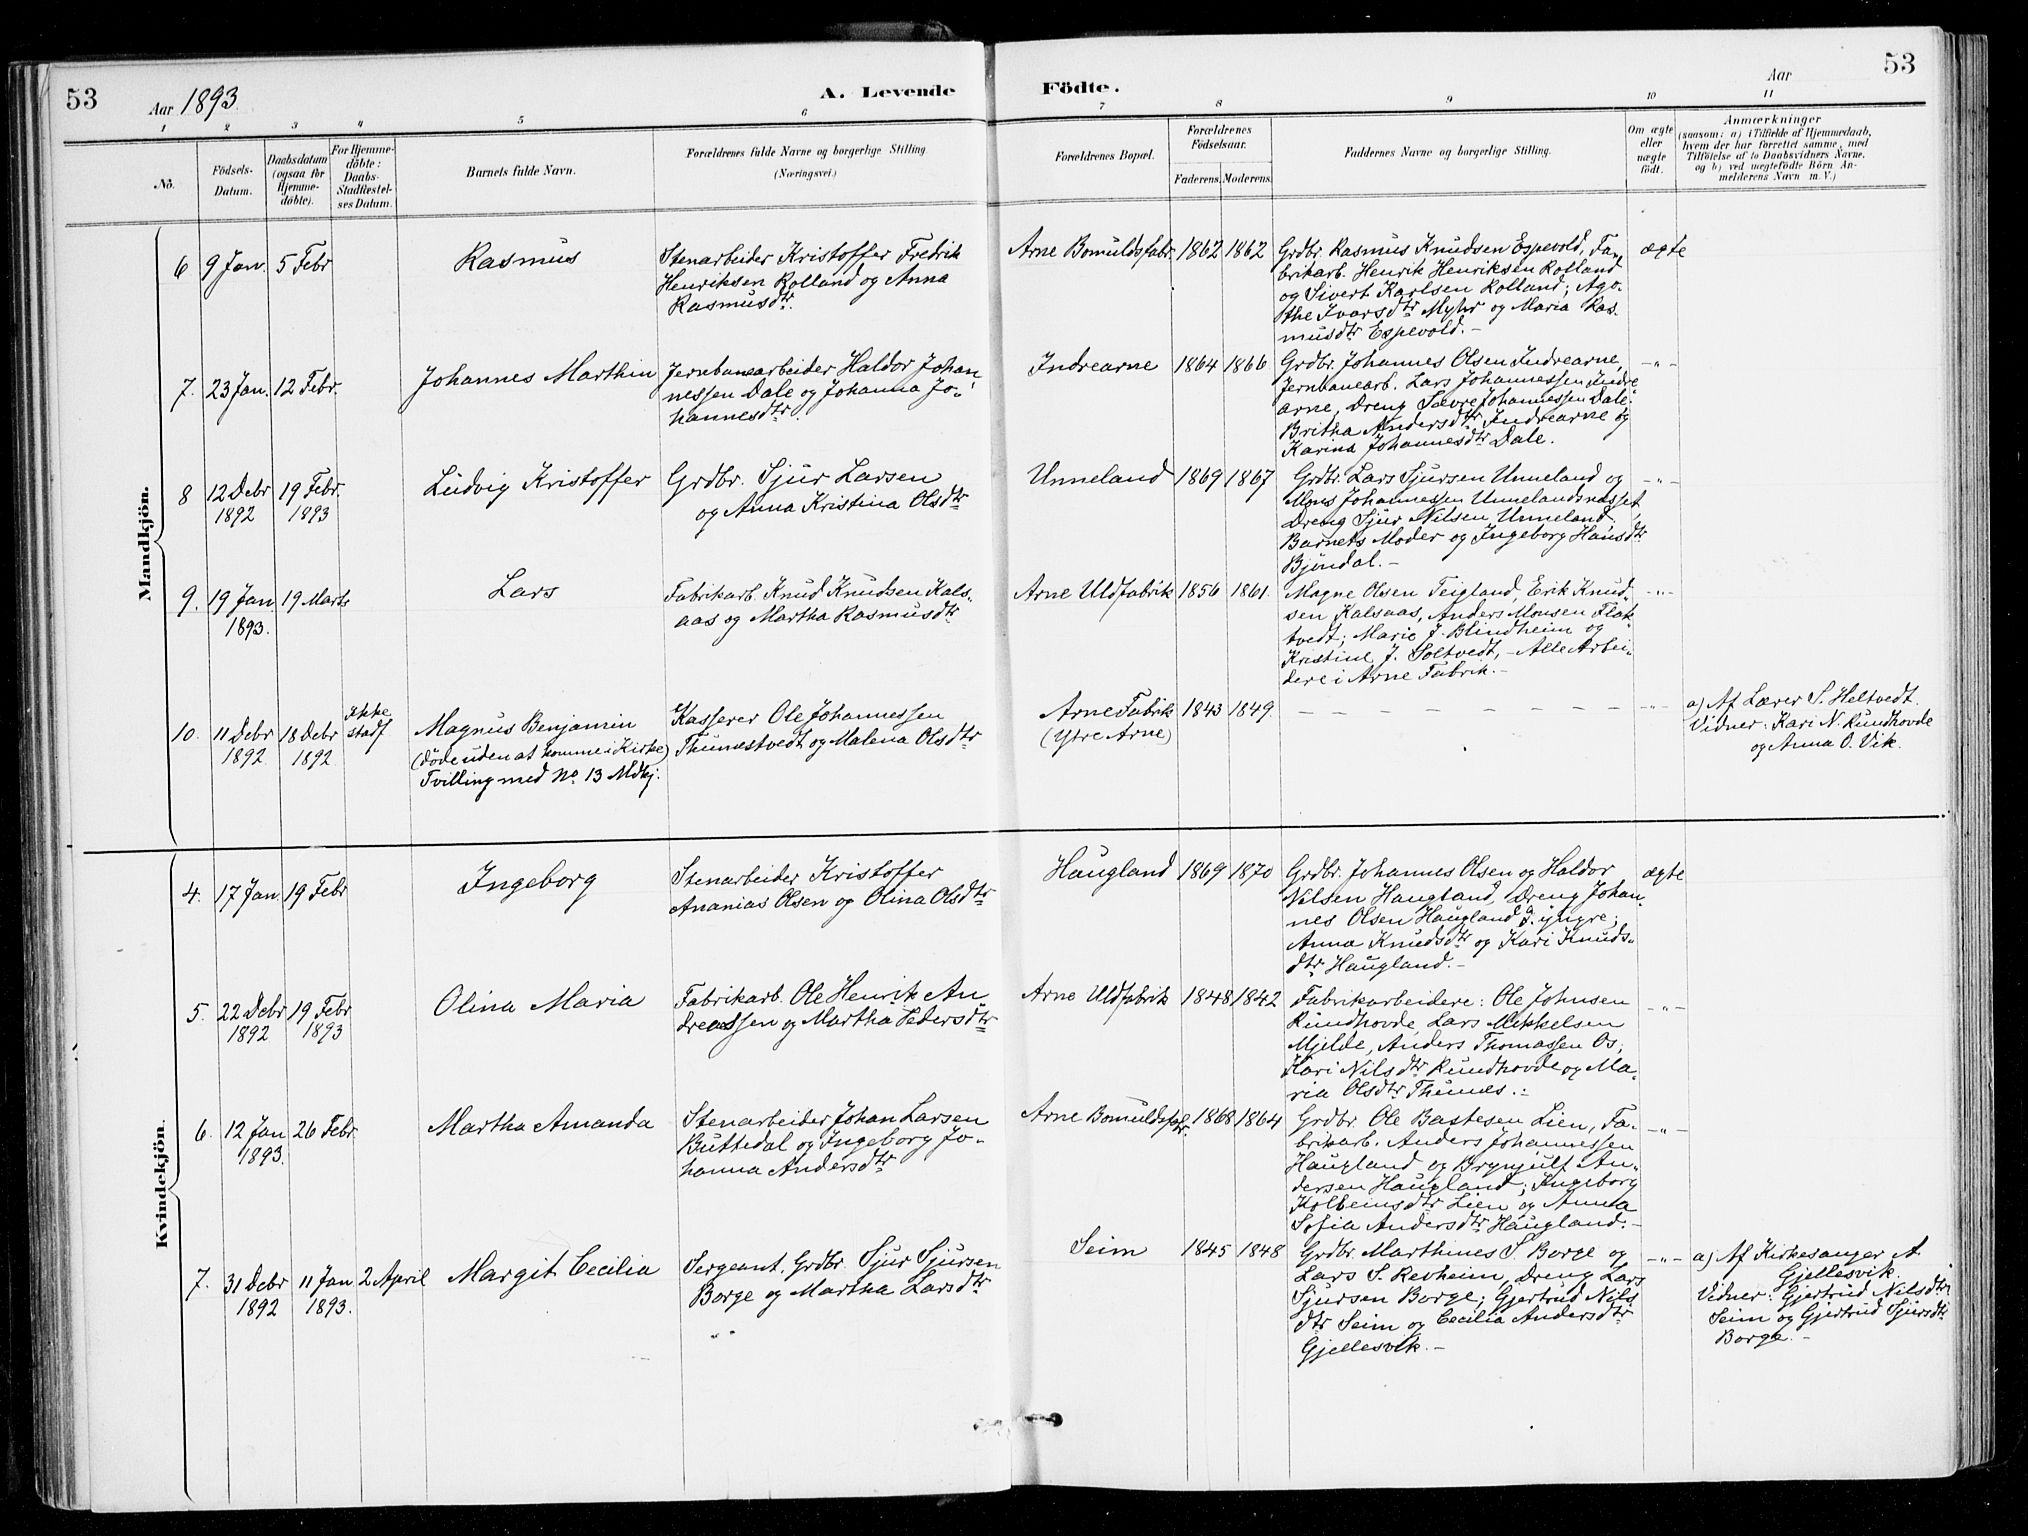 53
Aar 1893.
A. Levende
Födte.
Aar
53
1
2
3
4
5
6
7
8
9
10
11
No.
Födsels-
Datum.
Daabsdatum
(ogsaa for
Hjemme-
döbte).
For Hjemme-
döbte:
Daabs-
Stadfæstel-
ses Datum.
Barnets fulde Navn.
Forældrenes fulde Navne og borgerlige Stilling
(Næringsvei.)
Forældrenes Bopæl.
Forældrenes
Födselsaar.
Faderens.
Moderens.
Faddernes Navne og borgerlige Stilling.
Om ægte
eller
uægte
födt.
Anmærkninger
(saasom: a) i Tilfælde af Hjemmedaab,
hvem der har forrettet samme, med
Tilföielse af to Daabsvidners Navne,
og b) ved uægtefödte Börn An-
melderens Navn m. V.)
Mandkjön.
6
9 Jan.
5 Febr
Rasmus
Stenarbeider Kristoffer Fredrik
Henriksen Rolland og Anna
Rasmusdtr.
Arne Bomuldsfabr.
1862
1862
Grdbr. Rasmus Knudsen Espevold, Fa-
brikarb. Henrik Henriksen Rolland
og Sivert Karlsen Rolland; Ago-
the Ivarsdtr Myhr og Maria Ras-
musdtr Espevold.-
ægte
7.
23 Jan.
12 Febr.
Johannes Marthin
Jernbanearbeider Haldor Johan-
nessen Dale og Johanna Jo-
hannesdtr
Indrearne
1864
1866
Grdbr. Johannes Olsen Indrearne,
Jernbanearb. Lars Johannessen Indre
arne, Dreng Sævre Johannessen Dale;
Britha Andersdtr Indrearne og
Karina Johannesdtr Dale.
-"-
8
12 Debr
1892
19 Febr.
1893
Ludvig Kristoffer
Grdbr. Sjur Larsen
og Anna Kristina Olsdtr
Unneland
1869
1867
Grdbr. Lars Sjursen Unneland og
Mons Johannessen Unnelandsnæsset,
Dreng Sjur Nilsen Unneland;
Barnets Moder og Ingeborg Hansdtr
Bjöndal.-
-"-
9.
19 Jan
1893.
19 Marts
Lars
Fabrikarb. Knud Knudsen Kals-
aas og Martha Rasmusdtr
Arne Uldfabrik
1856
1861.
Magne Olsen Teigland, Erik Knud-
sen Kalsaas, Anders Monsen Flak-
tvedt; Marie J. Blindheim og
Kristine J. Soltvedt, - Alle Arbei-
dere i Arne Fabrik.-
-"-
10.
11 Debr
1892
18 Debr
1892
Ikke
stadf
Magnus Benjamin
(döde uden at komme i Kirke)
Tvilling med No 13 Mdkj.
Kasserer Ole Johannessen
Thunestvedt og Malena Olsdtr
Arne Fabrik
(Ytre Arne)
1843
1849
- - - - - - - - - -
-"-
a) Af Lærer S. Heltvedt.
Vidner: Kari N. Rundhovde
og Anna O. Vik.
Kvindekjön.
4.
17 Jan.
19 Febr
Ingeborg
Stenarbeider Kristoffer
Ananias Olsen og Olina Olsdtr
Haugland
1869
1870
Grdbr. Johannes Olsen og Haldor
Nilsen Haugland, Dreng Johan-
nes Olsen Haugland d. yngre;
Anna Knudsdtr og Kari Knuds-
dtr Haugland.-
ægte
5.
22 Debr
1892
19 Febr
1893
Olina Maria
Fabrikarb. Ole Henrik An-
dreassen og Martha Pedersdtr
Arne Uldfabrik
1848
1842
Fabrikarbeidere: Ole Johnsen
Rundhovde, Lars Mikkelsen
Mjelde, Anders Thomassen Os;
Kari Nilsdtr Rundhovde og Ma-
ria Olsdtr Thunes.-
-"-
6.
12 Jan
1893.
26 Febr.
Martha Amanda
Stenarbeider Johan Larsen
Buttedal og Ingeborg Jo-
hanna Andersdtr
Arne Bomuldsfbr.
1868
1864
Grdbr. Ole Bastesen Lien, Fa-
brikarb. Anders Johannessen
Haugland og Brynjulf An-
dersen Haugland; Ingeborg
Kolbeinsdtr Lien og Anna
Sofia Andersdtr Haugland.-
-"-
7.
31 Debr
1892
11 Jan
1893.
2 April
Margit Cecilia
Sergeant. Grdbr. Sjur Sjursen
Borge og Martha Larsdtr
Seim
1845
1848
Grdbr. Marthines S. Borge og
Lars S. Revheim, Dreng Lars
Sjursen Borge; Gjertrud Nils
dtr Seim og Cecilia Andersdtr
Gjellesvik.-
-"-
a) Af Kirkesanger A.
Gjellesvik.
Vidner: Gjertrud Nilsdtr
Seim og Gjertrud Sjursdtr
Borge.-